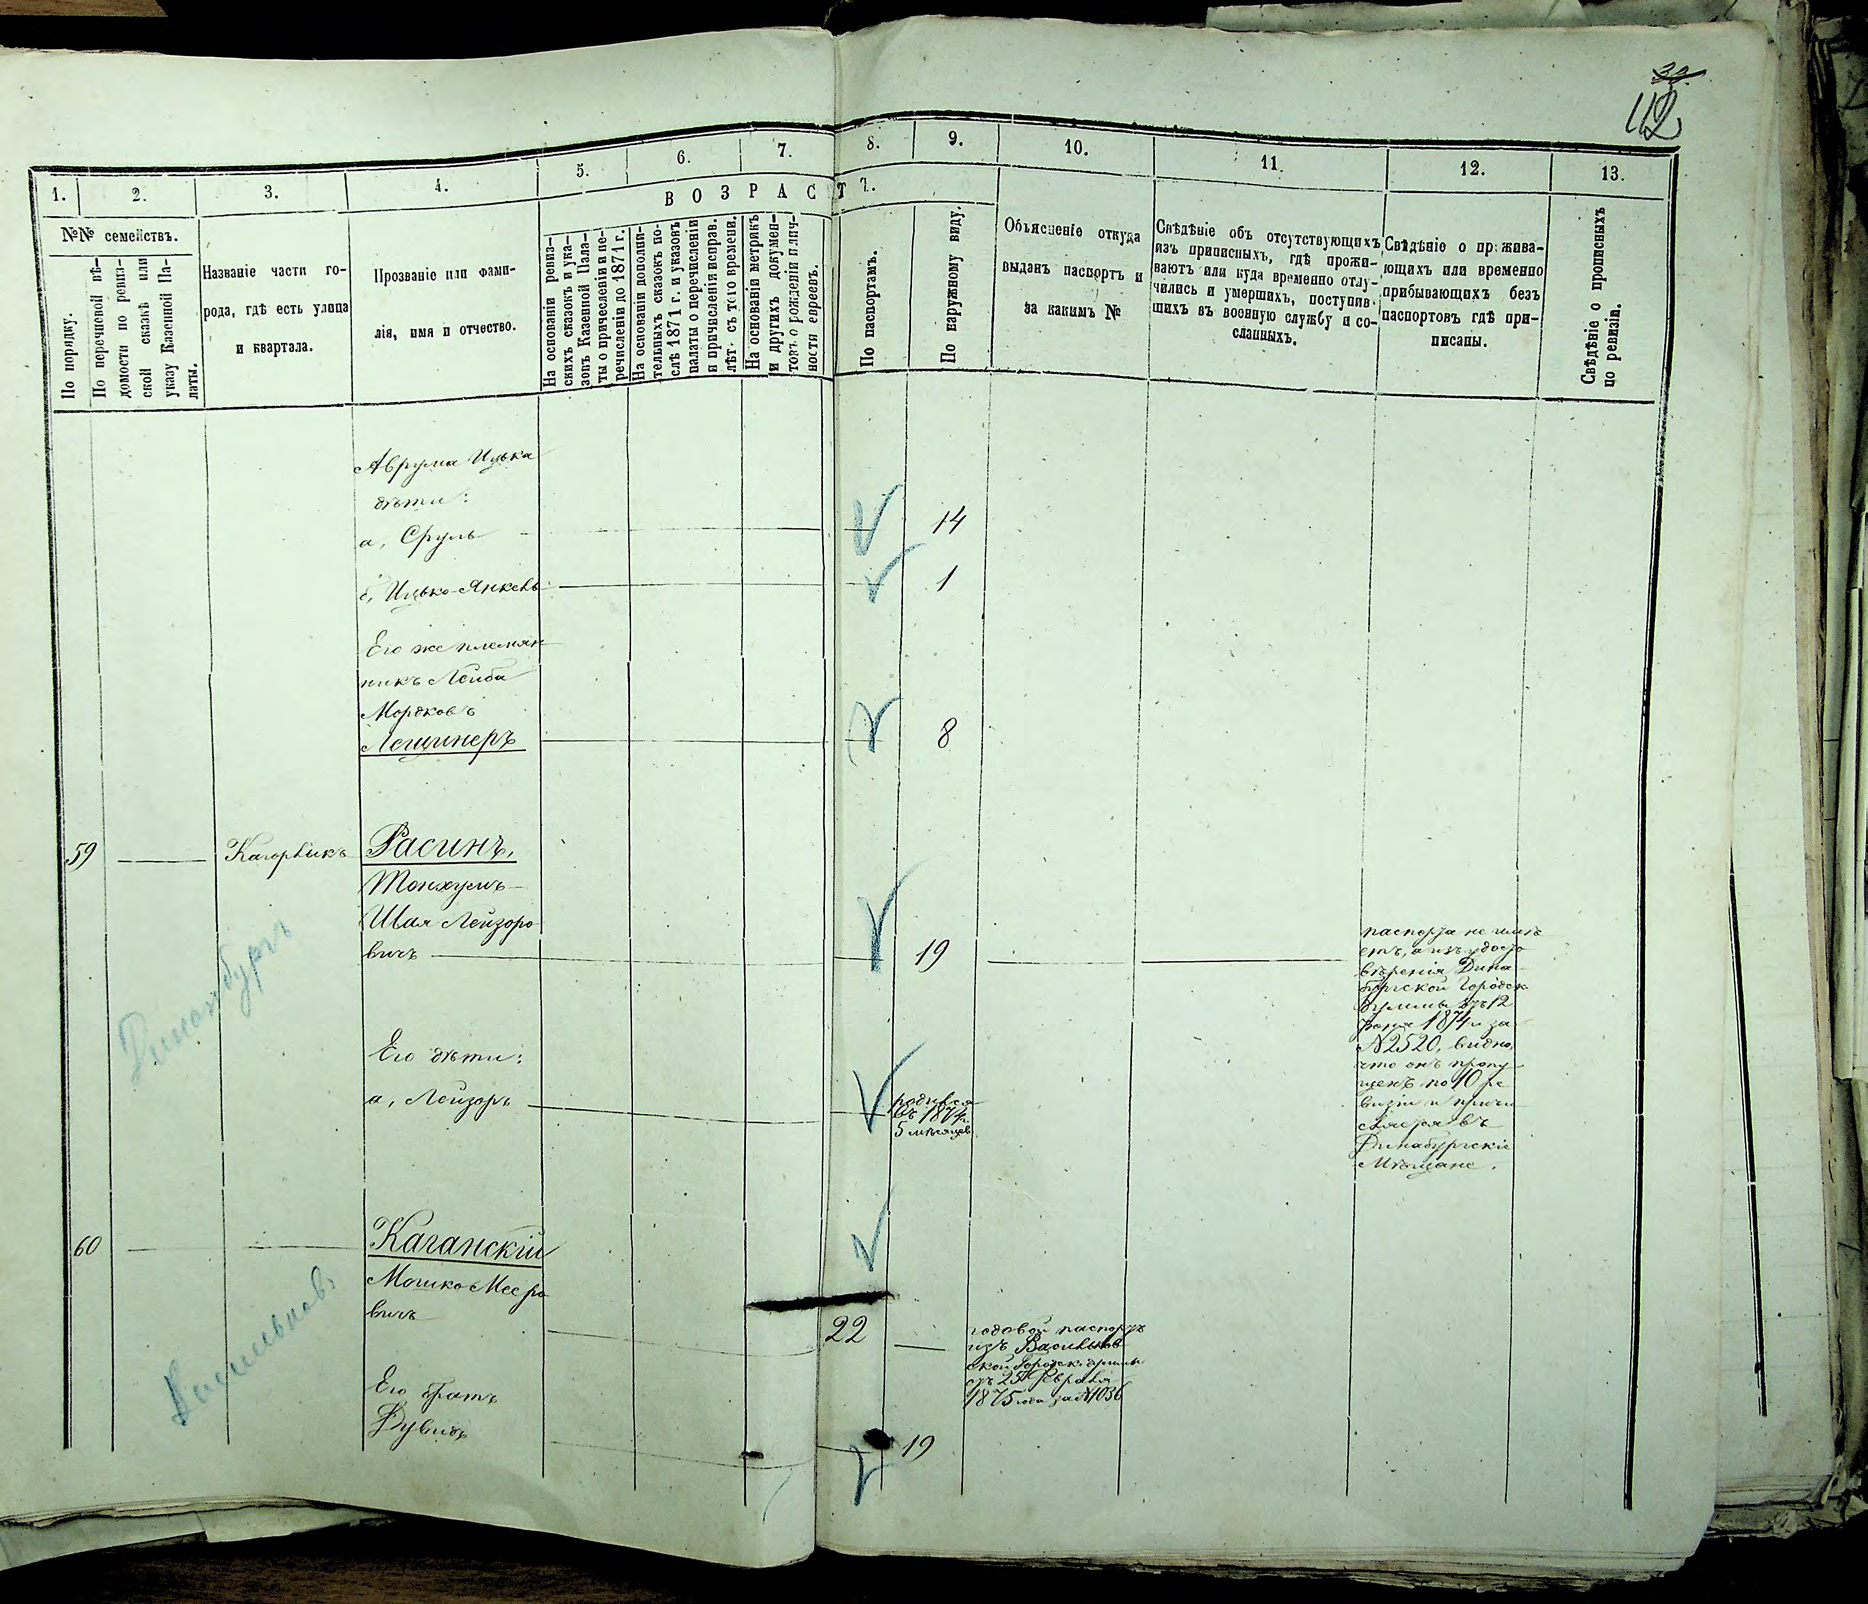 39
112
1.
2.
3.
4.
5.
6.
7.
8.
9.
10.
11.
12.
13.
ВОЗРАСТ
№№ семействъ.
По порядку.
По перечневой вѣ-
домости по ревиз-
ской сказкѣ или
указу Казенной Па-
латы.
Названіе части го-
рода, гдѣ есть улица
и квартала.
Прозваніе или фами-
лія, имя и отчество.
На основаніи ревиз-
скихъ сказокъ и ука-
зовъ Казенной Пала-
ты о причисленіи и пе-
речисленіи до 1871 г.
На основаніи дополни-
тельныхъ сказокъ по-
слѣ 1871 г. и указовъ
палаты о перечисленіи
и причисленіи исправ.
лѣт. съ того времени.
На основаніи метрикъ
и другихъ докумен-
товъ о рожденіи и лич-
ности евреевъ.
По паспортамъ.
По наружному виду.
Объясненіе откуда
выданъ паспортъ и
за какимъ №
Свѣдѣніе объ отсутствующихъ
изъ приписныхъ, гдѣ прожи-
ваютъ или куда временно отлу-
чились и умершихъ, поступив-
шихъ въ военную службу и со-
сланныхъ.
Свѣдѣніе о прожива-
ющихъ или временно
прибывающихъ безъ
паспортовъ гдѣ при-
писаны.
Свѣдѣніе о прописныхъ
по ревизіи.
Аврума Ицька
дѣти:
а, Сруль 14
б, Ицько-Янкель 1
Его же племян
никъ Лейба
Мордковъ
Лещинеръ 8
59 Кагорлыкъ Расинъ,
Тонхумъ-
Шая Лейзоро
вичъ 19
паспорта не имѣ
етъ, а изъ удосто
вѣренія Дина
бургской Городск
думы отъ 12
1874 г за
№ 2520, видно,
что онъ пропу
щенъ по 10 ре
візіи и причи
сляется въ
Динабургскіе
Мѣщане.
Динабургъ
Его дѣти:
а, Лейзоръ
родился
въ 1874 г.
5 мѣсяцев
60 Каганскій
Мошко Мееро
вичъ 22
годовой паспортъ
изъ Васильков
ской Городск. думы
отъ 25 Февраля
1875 года за № 1036
Васильков.
Его братъ
Дувидъ 19